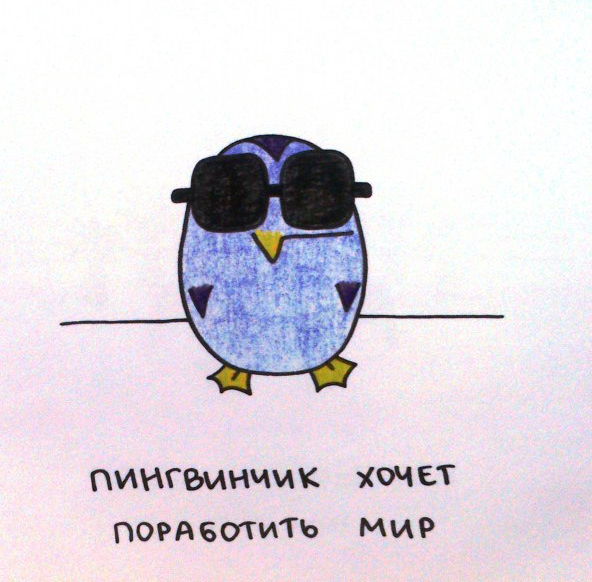 ПИНГВИНЧИК ХОЧЕТ
ПОРАБОТИТЬ МИР